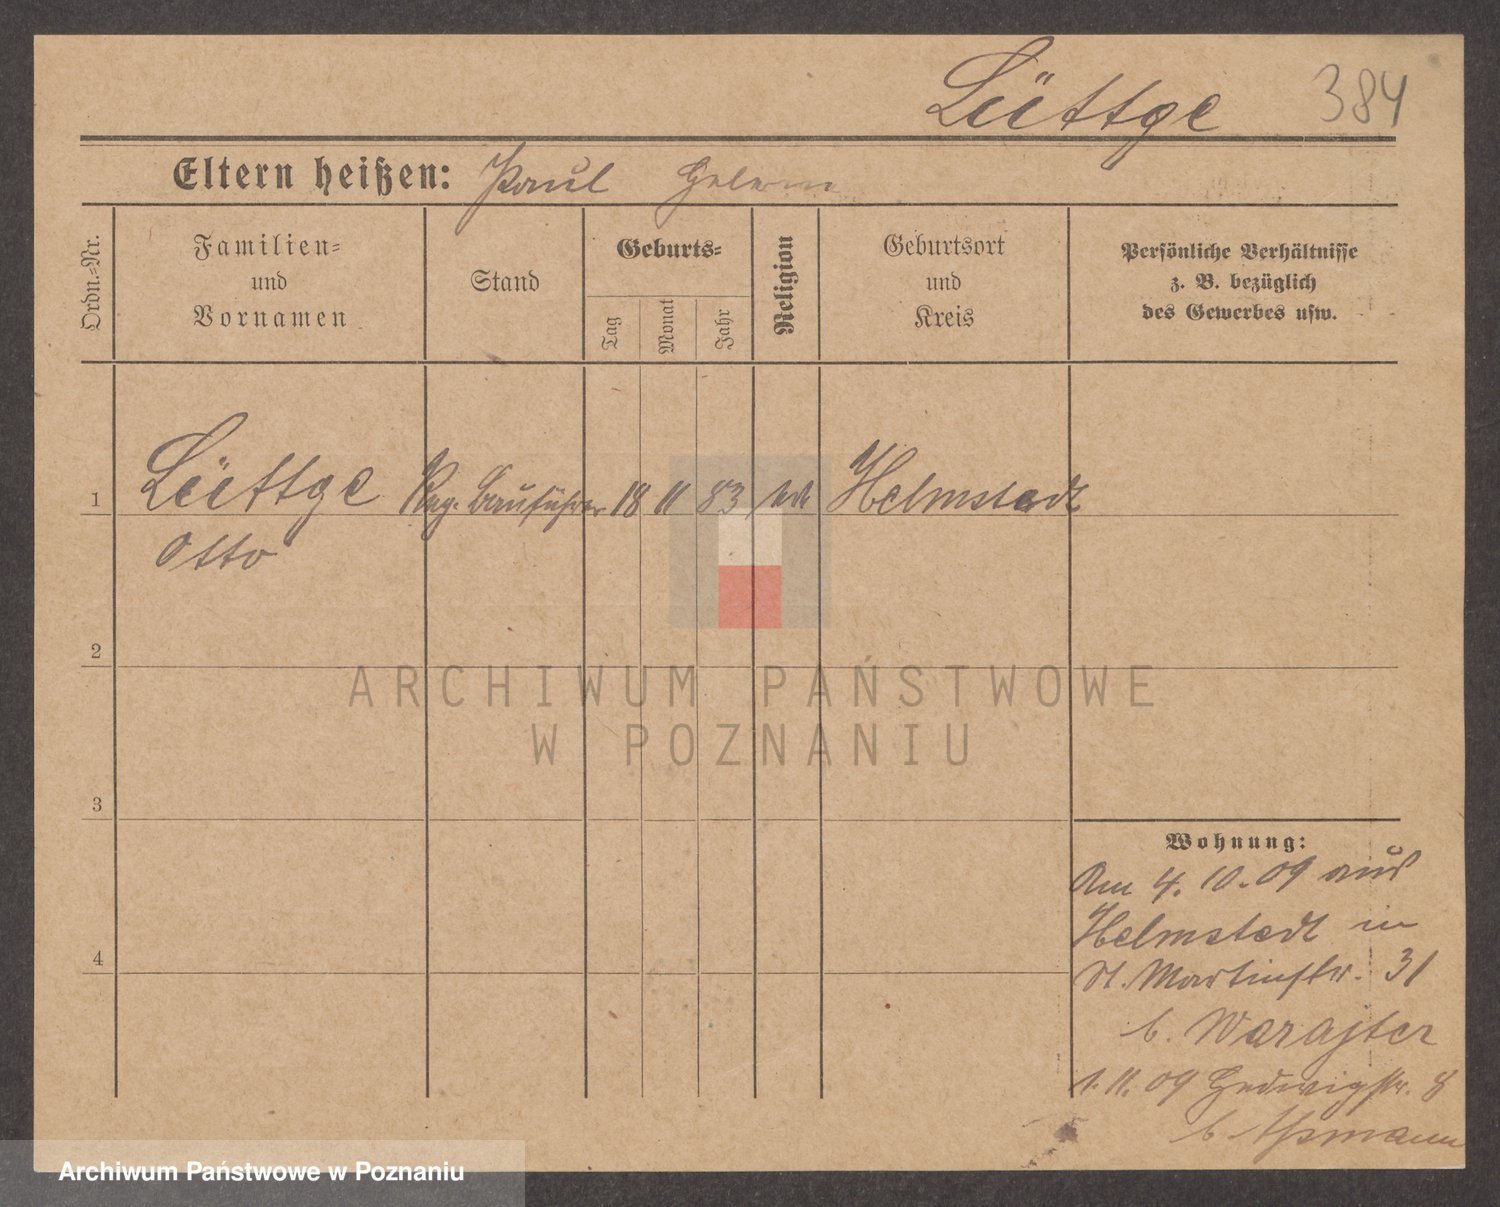 Lüttge 384
Eltern heißen: Paul Helene
Ordn.=Nr.
Familien=
und
Vornamen
Stand
Geburts=
Tag
Monat
Jahr
Religion
Geburtsort
und
Kreis
Persönliche Verhältnisse
z. B. bezüglich
des Gewerbes usw.
1 Lüttge Reg. Bauführer 18 11 83 Helmstedt
Otto
2
3
4
Wohnung:
Am 4. 10. 09 aus
Helmstedt in
St. Martinstr. 31
b. Warajter
1. 11. 09 Hedwigstr. 8
b.
ARCHIWUM PAŃSTWOWE
W POZNANIU
Archiwum Państwowe w Poznaniu